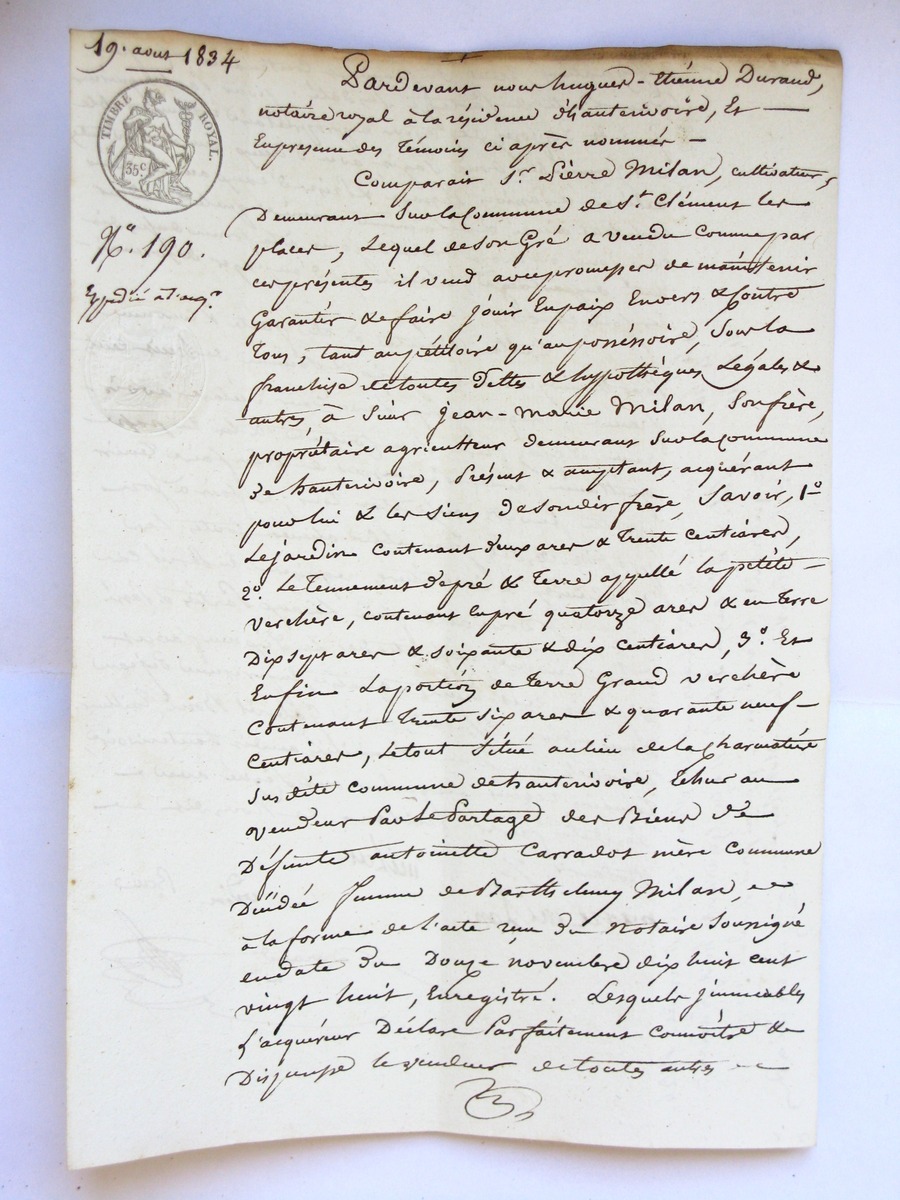 19. aout 1834
TIMBRE ROYAL.
35c
No. 190.
Expédié a l'acqr
Pardevant nous hugues-etiénne Durand,
notaire royal à la résidence d'hauterivoire, Et
En presence des Témoins ci après nommés
Comparait Sr. Piérre Milan, cultivateur,
Demeurant Sur la Commune de St. Clément les
places, Lequel de Son Gré a vendu comme par
ces présentes il vend avec promesses de maintenir
Garantir & de faire Jouir En paix Envers & Contre
Tous, tant au pétitoire qu'au posséssoire, Sous la
franchise de toutes dettes & hypothèques Légales &
autres, à Sieur Jean-Marie Milan, Son frère,
propriétaire agriculteur demeurant Sur la commune
de hauterivoire, Présent & acceptant, acquérant
pour lui & les Siens de Son dit frère, Savoir, 1o
Le jardin contenant deux ares & Trente Centiares,
2o. Le Tennement de pré & Terre appellé la petite
verchère, contenant En pré quatorze ares & en Terre
Dix sept ares & soixante & dix centiares, 3o. Et
Enfin La portion de Terre Grand verchère
Contenant Trente Six ares & quarante neuf
Centiares, Le tout Situé au lieu de la Charmatière
Sus dite Commune de hauterivoire, Echue au
vendeur Par Le Partage des Biens de
Défunte antoinette Carradot mère Commune
Décédée femme de Barthelemy Milan,
à la forme de l'acte reçu du Notaire Soussigné
en date du Douze novembre dix huit cent
vingt huit, Enregistré. Lesquels Immeubles
L'acquéreur Déclare Parfaitement connoitre &
Dispense le vendeur de toutes autres